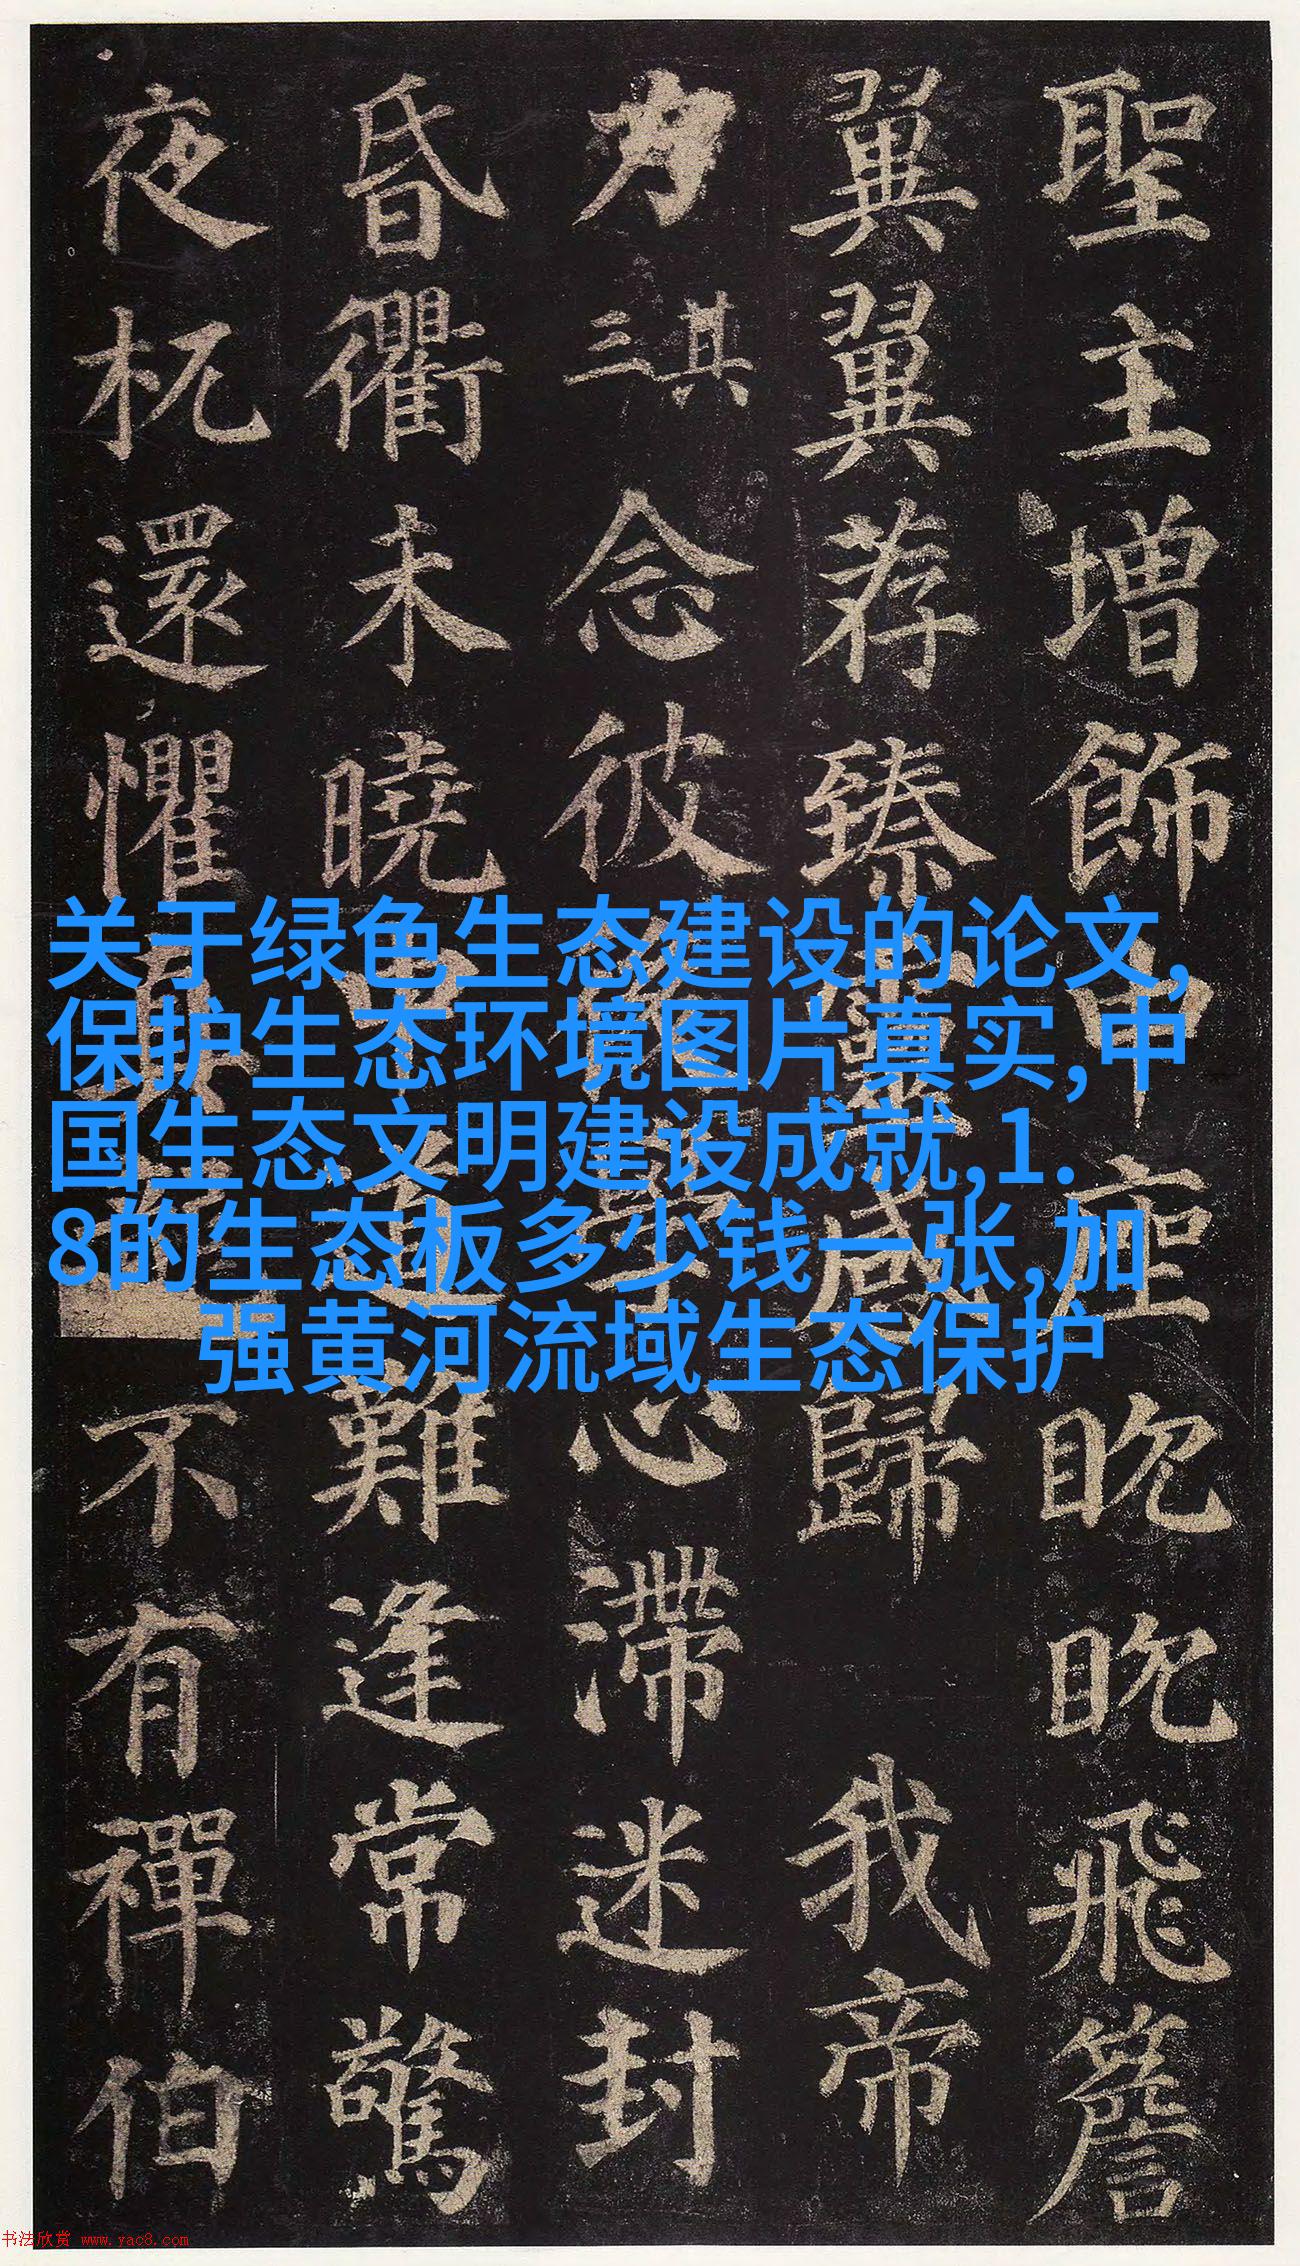 聖主增飾中座眈眈飛簷
翼翼荐臻靈感歸我帝
力其三念彼後學心滯迷封
昏衢未曉中道難逢常驚
夜杌還懼真不有禪伯
关于绿色生态建设的论文,
保护生态环境图片真实,中
国生态文明建设成就,1.
8的生态板多少钱一张,加
强黄河流域生态保护
书法欣赏 www.yac8.com